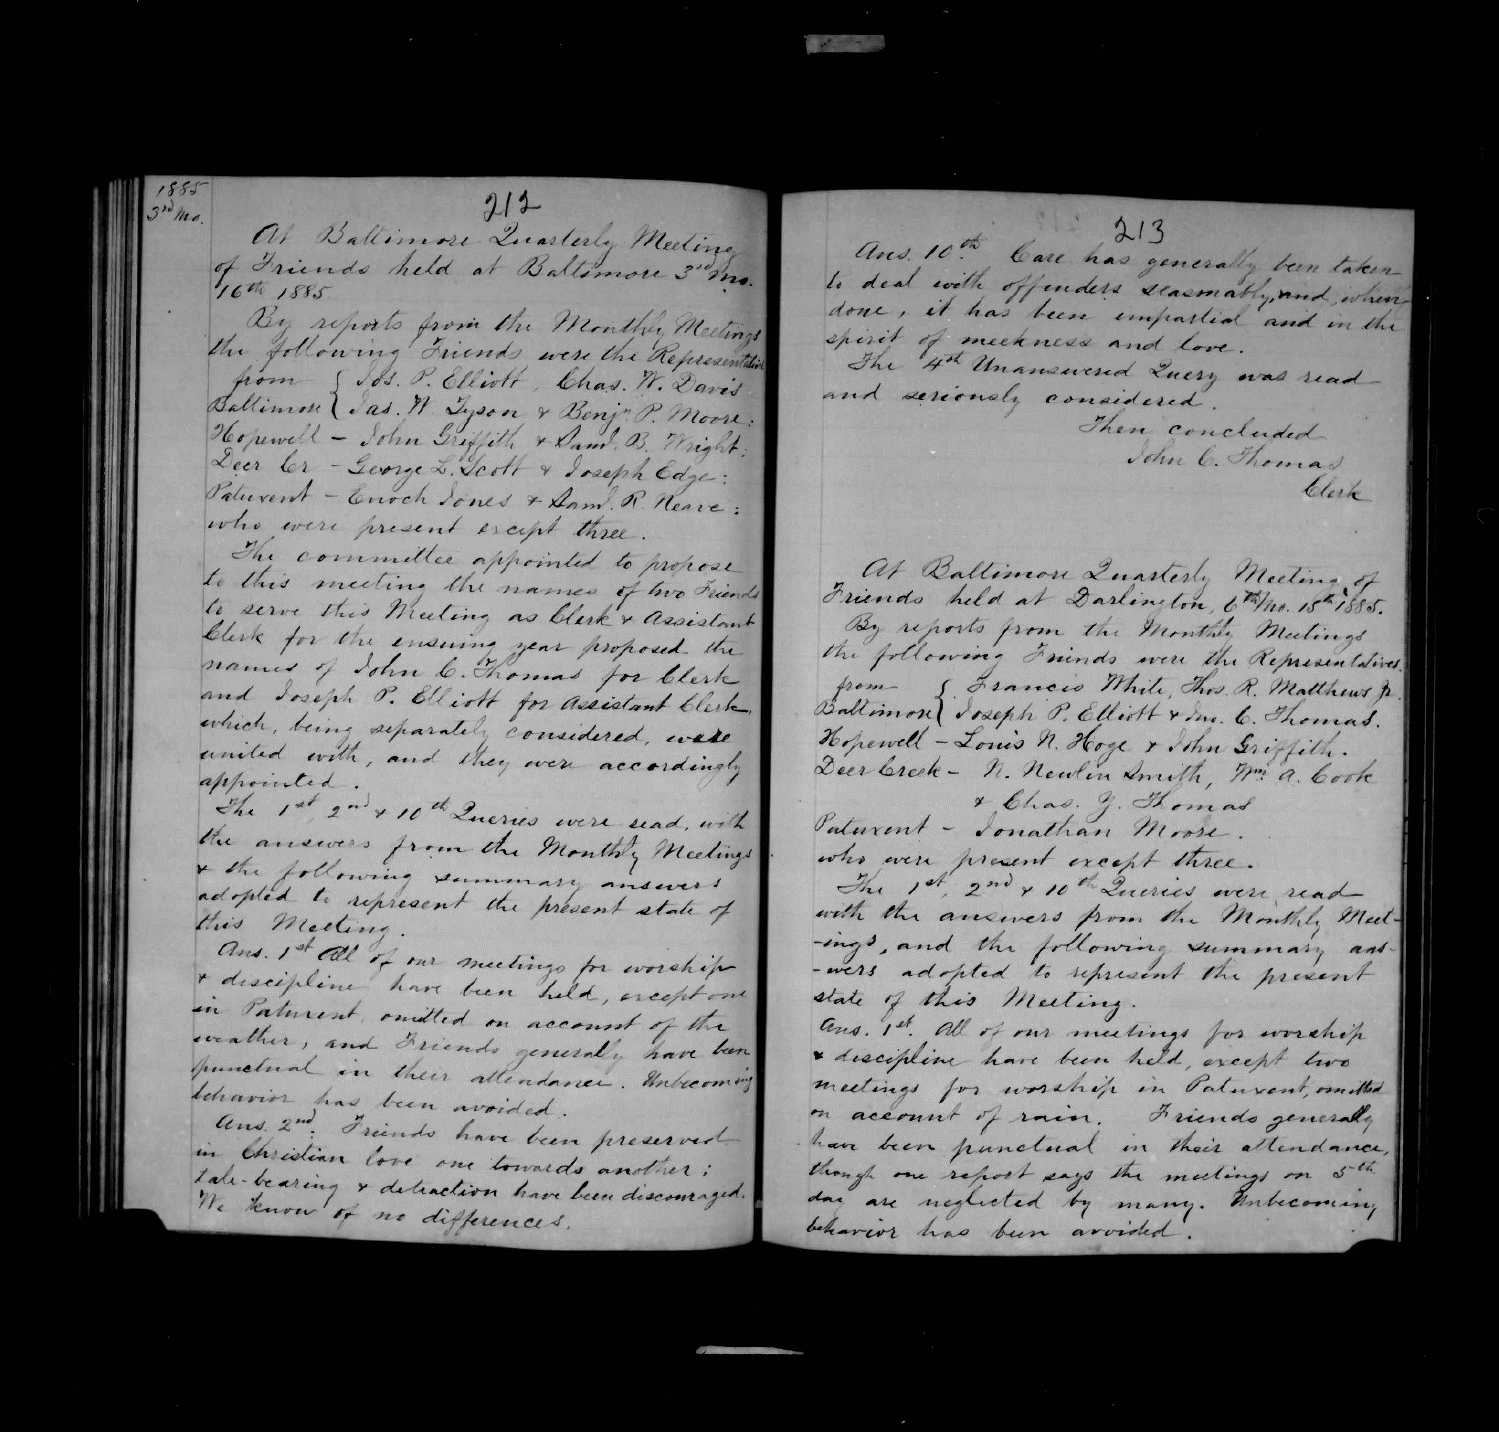 1885
3rd Mo.
212
At Baltimore Quarterly Meeting
of Friends held at Baltimore 3rd Mo.
16th 1885.
By reports from the Monthly Meetings
the following Friends were the Representatives
from { Jos. P. Elliott, Chas. W. Davis
Baltimore { Jas. W. Tyson & Benjn. P. Moore:
Hopewell - John Griffith & Saml. B. Wright:
Deer Cr - George L. Scott & Joseph Edge:
Patuxent - Enoch Jones & Saml. R. Neave:
who were present except three.
The committee appointed to propose
to this meeting the names of two Friends
to serve this Meeting as Clerk & Assistant
Clerk for the ensuing year proposed the
names of John C. Thomas for Clerk
and Joseph P. Elliott for Assistant Clerk,
which, being separately considered, were
united with, and they were accordingly
appointed.
The 1st 2nd & 10th Queries were read, with
the answers from the Monthly Meetings
& the following summary answers
adopted to represent the present state of
this Meeting.
Ans. 1st All of our meetings for worship
& discipline have been held, except one
in Patuxent omitted on account of the
weather, and Friends generally have been
punctual in their attendance. Unbecoming
behavior has been avoided.
Ans. 2nd. Friends have been preserved
in Christian love one towards another;
tale-bearing & detraction have been discouraged.
We know of no differences.
213
Ans. 10th. Care has generally been taken
to deal with offenders seasonably, and, when
done, it has been impartial and in the
spirit of meekness and love.
The 4th Unanswered Query was read
and seriously considered.
Then concluded
John C. Thomas
Clerk
At Baltimore Quarterly Meeting of
Friends held at Darlington, 6th Mo. 15th 1885.
By reports from the Monthly Meetings
the following Friends were the Representatives,
from { Francis White, Thos. R. Matthews Jr.
Baltimore { Joseph P. Elliott & Jno. C. Thomas.
Hopewell - Louis N. Hoge & John Griffith.
Deer Creek - N. Newlin Smith, Wm. A. Cook
& Chas. Y. Thomas
Patuxent - Jonathan Moore.
who were present except three.
The 1st, 2nd & 10th Queries were read
with the answers from the Monthly Meet-
-ings, and the following summary ans-
-wers adopted to represent the present
state of this Meeting.
Ans. 1st. All of our meetings for worship
& discipline have been held, except two
meetings for worship in Patuxent, omitted
on account of rain. Friends generally
have been punctual in their attendance,
though one report says the meetings on 5th
day are neglected by many. Unbecoming
behavior has been avoided.